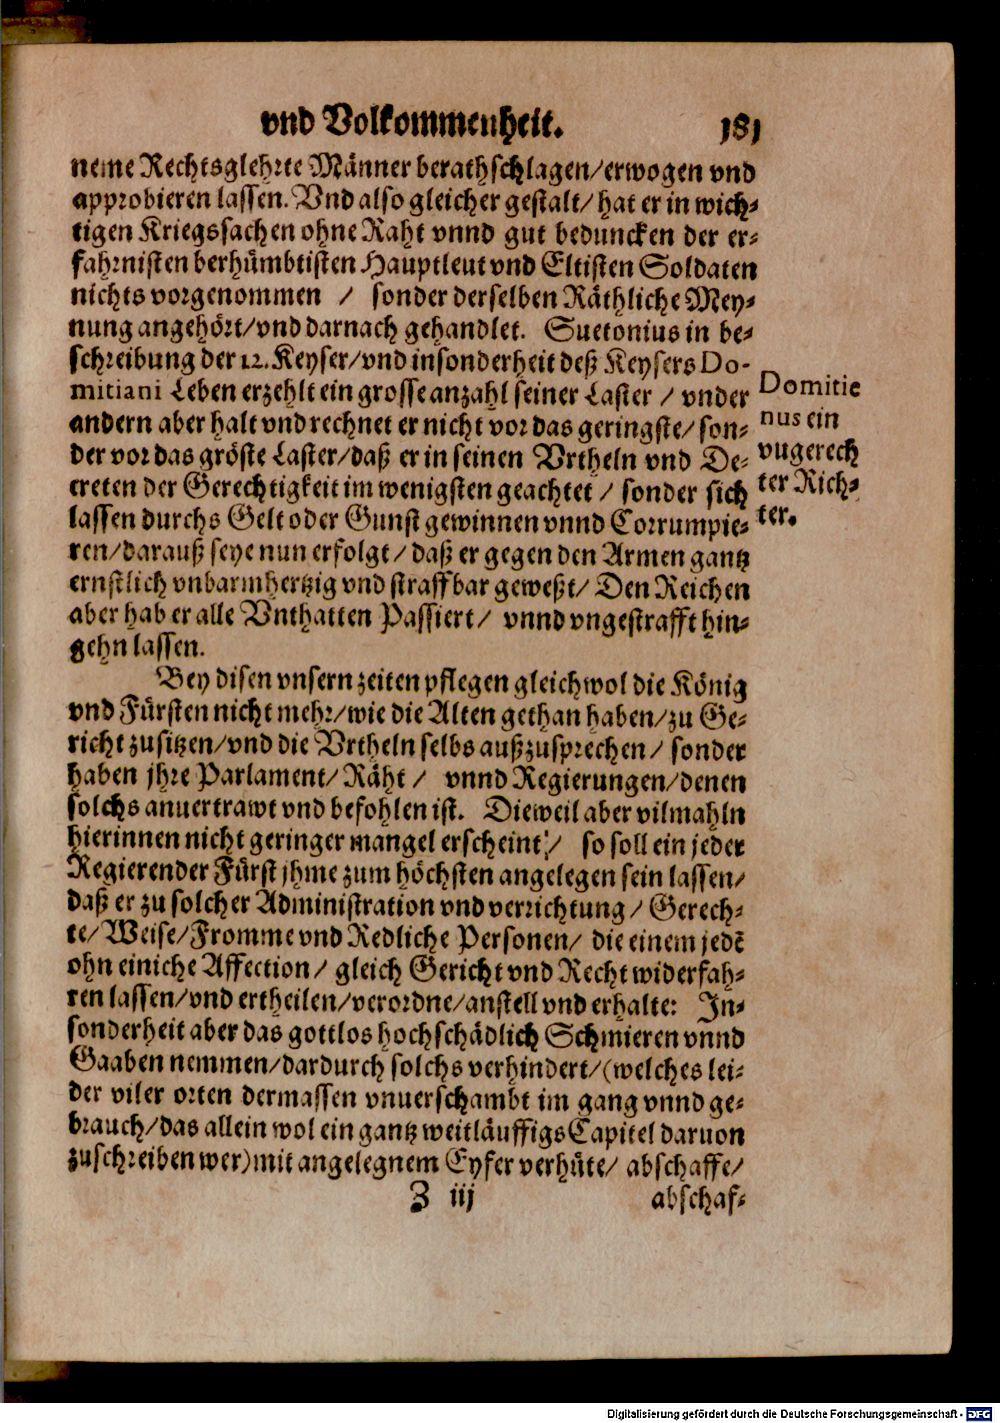 vnd Volkommenheit. 181
neme Rechtsglehrte Männer berathschlagen/erwogen vnd
approbieren lassen. Vnd also gleicher gestalt/ hat er in wich-
tigen Kriegssachen ohne Raht vnnd gut beduncken der er-
fahrnisten berhümbtisten Hauptleut vnd Eltisten Soldaten
nichts vorgenommen / sonder derselben Räthliche Mey-
nung angehört/vnd darnach gehandlet. Suetonius in be-
schreibung der 12. Keyser/vnd insonderheit deß Keysers Do-
mitiani Leben erzehlt ein grosse anzahl seiner Laster / vnder
andern aber halt vnd rechnet er nicht vor das geringste/ son-
der vor das gröste Laster/daß er in seinen Vrtheln vnd De-
creten der Gerechtigkeit im wenigsten geachtet / sonder sich
lassen durchs Gelt oder Gunst gewinnen vnnd Corrumpie-
ren/darauß seye nun erfolgt/ daß er gegen den Armen gantz
ernstlich vnbarmhertzig vnd straffbar geweßt/ Den Reichen
aber hab er alle Vnthatten Passiert/ vnnd vngestrafft hin-
gehn lassen.
Domitie
nus ein
vngerech
ter Rich-
ter.
Bey disen vnsern zeiten pflegen gleichwol die König
vnd Fürsten nicht mehr/wie die Alten gethan haben/zu Ge-
richt zusitzen/vnd die Vrtheln selbs außzusprechen/ sonder
haben jhre Parlament/Räht / vnnd Regierungen/denen
solchs anuertrawt vnd befohlen ist. Dieweil aber vilmahln
hierinnen nicht geringer mangel erscheint / so soll ein jeder
Regierender Fürst jhme zum höchsten angelegen sein lassen/
daß er zu solcher Administration vnd verrichtung / Gerech-
te/Weise/Fromme vnd Redliche Personen/ die einem jedē
ohn einiche Affection/ gleich Gericht vnd Recht widerfah-
ren lassen/vnd ertheilen/verordne/anstell vnd erhalte: In-
sonderheit aber das gottlos hochschädlich Schmieren vnnd
Gaaben nemmen/dardurch solchs verhindert/(welches lei-
der viler orten dermassen vnuerschambt im gang vnnd ge-
brauch/das allein wol ein gantz weitläuffigs Capitel daruon
zuschreiben wer)mit angelegnem Eyfer verhüte/ abschaffe/
Z iij abschaf-
Digitalisierung gefördert durch die Deutsche Forschungsgemeinschaft - DFG